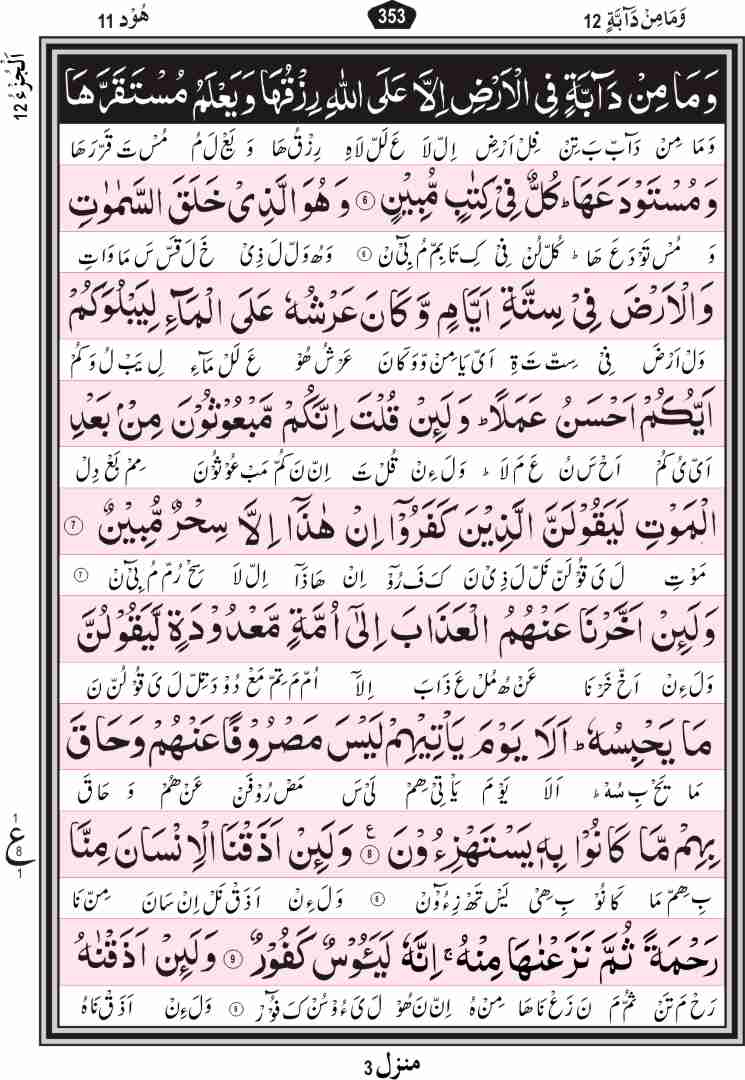 وَمَا مِنْ دَآبَّةٍ 12
353
هُوْد 11
اَلْجُزْءُ 12
وَمَا مِنْ دَآبَّةٍ فِي الْاَرْضِ اِلَّا عَلَى اللّٰهِ رِزْقُهَا وَيَعْلَمُ مُسْتَقَرَّهَا
وَمَا مِنْ دَآبْ بَتِنْ فِلْ اَرْضِ اِلْ لَا عَ لَلْ لَاهِ رِزْقُ هَا وَ يَعْ لَ مُ مُسْ تَ قَرْ رَهَا
وَمُسْتَوْدَعَهَا ؕ كُلٌّ فِيْ كِتٰبٍ مُّبِيْنٍ ۝6 وَهُوَ الَّذِيْ خَلَقَ السَّمٰوٰتِ
وَ مُسْ تَوْدَعَ هَا ؕ كُلْ لُنْ فِيْ كِ تَابِمْ مُ بِيْٓ نْ ۝6 وَهُ وَلْ لَ ذِيْ خَ لَ قَسْ سَ مَا وَاتِ
وَالْاَرْضَ فِيْ سِتَّةِ اَيَّامٍ وَّكَانَ عَرْشُهٗ عَلَى الْمَآءِ لِيَبْلُوَكُمْ
وَلْ اَرْضَ فِيْ سِتْ تَ ةِ اَيْ يَامِنْ وْوَكَانَ عَرْشُ هُوْ عَ لَلْ مَآءِ لِ يَبْ لُ وَ كُمْ
اَيُّكُمْ اَحْسَنُ عَمَلًا ؕ وَلَئِنْ قُلْتَ اِنَّكُمْ مَّبْعُوْثُوْنَ مِنْۢ بَعْدِ
اَيْ يُ كُمْ اَحْ سَ نُ عَ مَ لَا ؕ وَ لَ ءِنْ قُلْ تَ اِنْ نَ كُمْ مَبْ عُوْثُوْنَ مِمْ بَعْ دِلْ
الْمَوْتِ لَيَقُوْلَنَّ الَّذِيْنَ كَفَرُوْٓا اِنْ هٰذَآ اِلَّا سِحْرٌ مُّبِيْنٌ ۝7
مَوْتِ لَ يَ قُوْلَنْ نَلْ لَ ذِيْ نَ كَ فَ رُوْٓ اِنْ هَاذَآ اِلْ لَا سِحْ رُمْ مُ بِيْٓ نْ ۝7
وَلَئِنْ اَخَّرْنَا عَنْهُمُ الْعَذَابَ اِلٰٓى اُمَّةٍ مَّعْدُوْدَةٍ لَّيَقُوْلُنَّ
وَ لَ ءِنْ اَخْ خَرْ نَا عَنْ هُ مُلْ عَ ذَابَ اِلَآ اُمْ مَ تِمْ مَعْ دُوْ دَ تِلْ لَ يَ قُوْ لُنْ نَ
مَا يَحْبِسُهٗ ؕ اَلَا يَوْمَ يَاْتِيْهِمْ لَيْسَ مَصْرُوْفًا عَنْهُمْ وَحَاقَ
مَا يَحْ بِ سُهْ ؕ اَلَا يَوْ مَ يَاْتِيْ هِمْ لَيْ سَ مَصْ رُوْ فَنْ عَنْ هُمْ وَ حَاقَ
بِهِمْ مَّا كَانُوْا بِهٖ يَسْتَهْزِءُوْنَ ۝8 ع وَلَئِنْ اَذَقْنَا الْاِنْسَانَ مِنَّا
بِ هِمْ مَا كَا نُوْ بِ هِيْ يَسْ تَهْ زِءُوْٓنْ ۝8 وَ لَ ءِنْ اَذَقْ نَلْ اِنْ سَانَ مِنْ نَا
1 ع 8 1
رَحْمَةً ثُمَّ نَزَعْنٰهَا مِنْهُ ۚ اِنَّهٗ لَيَئُوْسٌ كَفُوْرٌ ۝9 وَلَئِنْ اَذَقْنٰهُ
رَحْ مَ تَنْ ثُمْ مَ نَ زَعْ نَا هَا مِنْ هُ اِنْ نَ هُوْ لَ يَ ءُوْ سُنْ كَ فُوْٓرْ ۝9 وَ لَ ءِنْ اَذَقْ نَاهُ
منزل 3